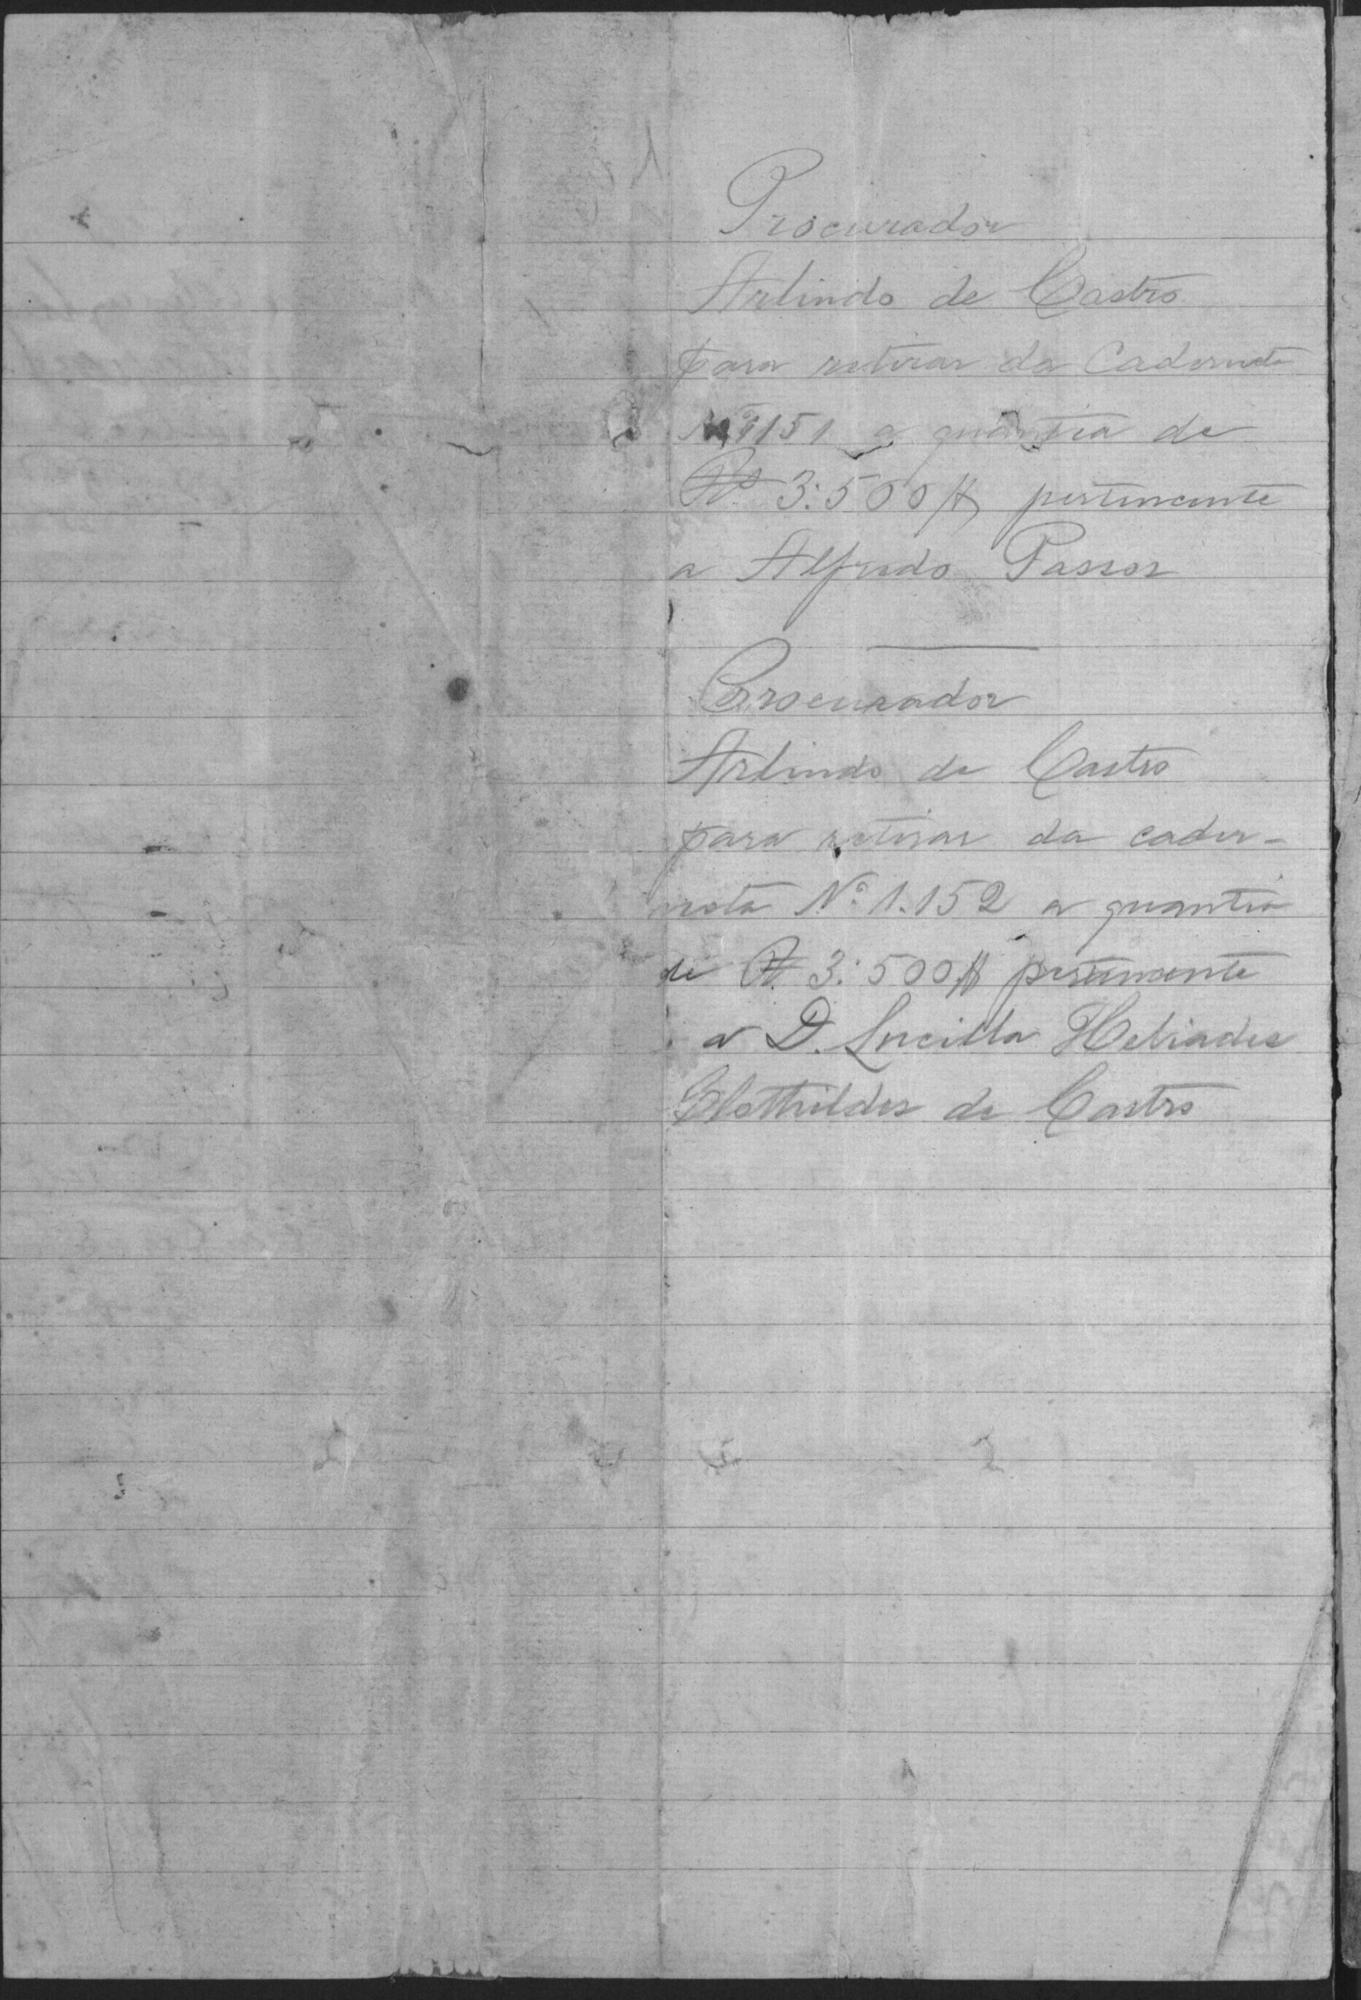 Procurador
Arlindo de Castro
para retirar da Caderneta
Nº 1151 a quantia de
Rs 3:500$ pertencente
a Alfredo Passos
Procurador
Arlindo de Castro
para retirar da cader-
neta Nº 1.152 a quantia
de Rs 3:500$ pertencente
a D. Lucilla Heliades
Clothildes de Castro